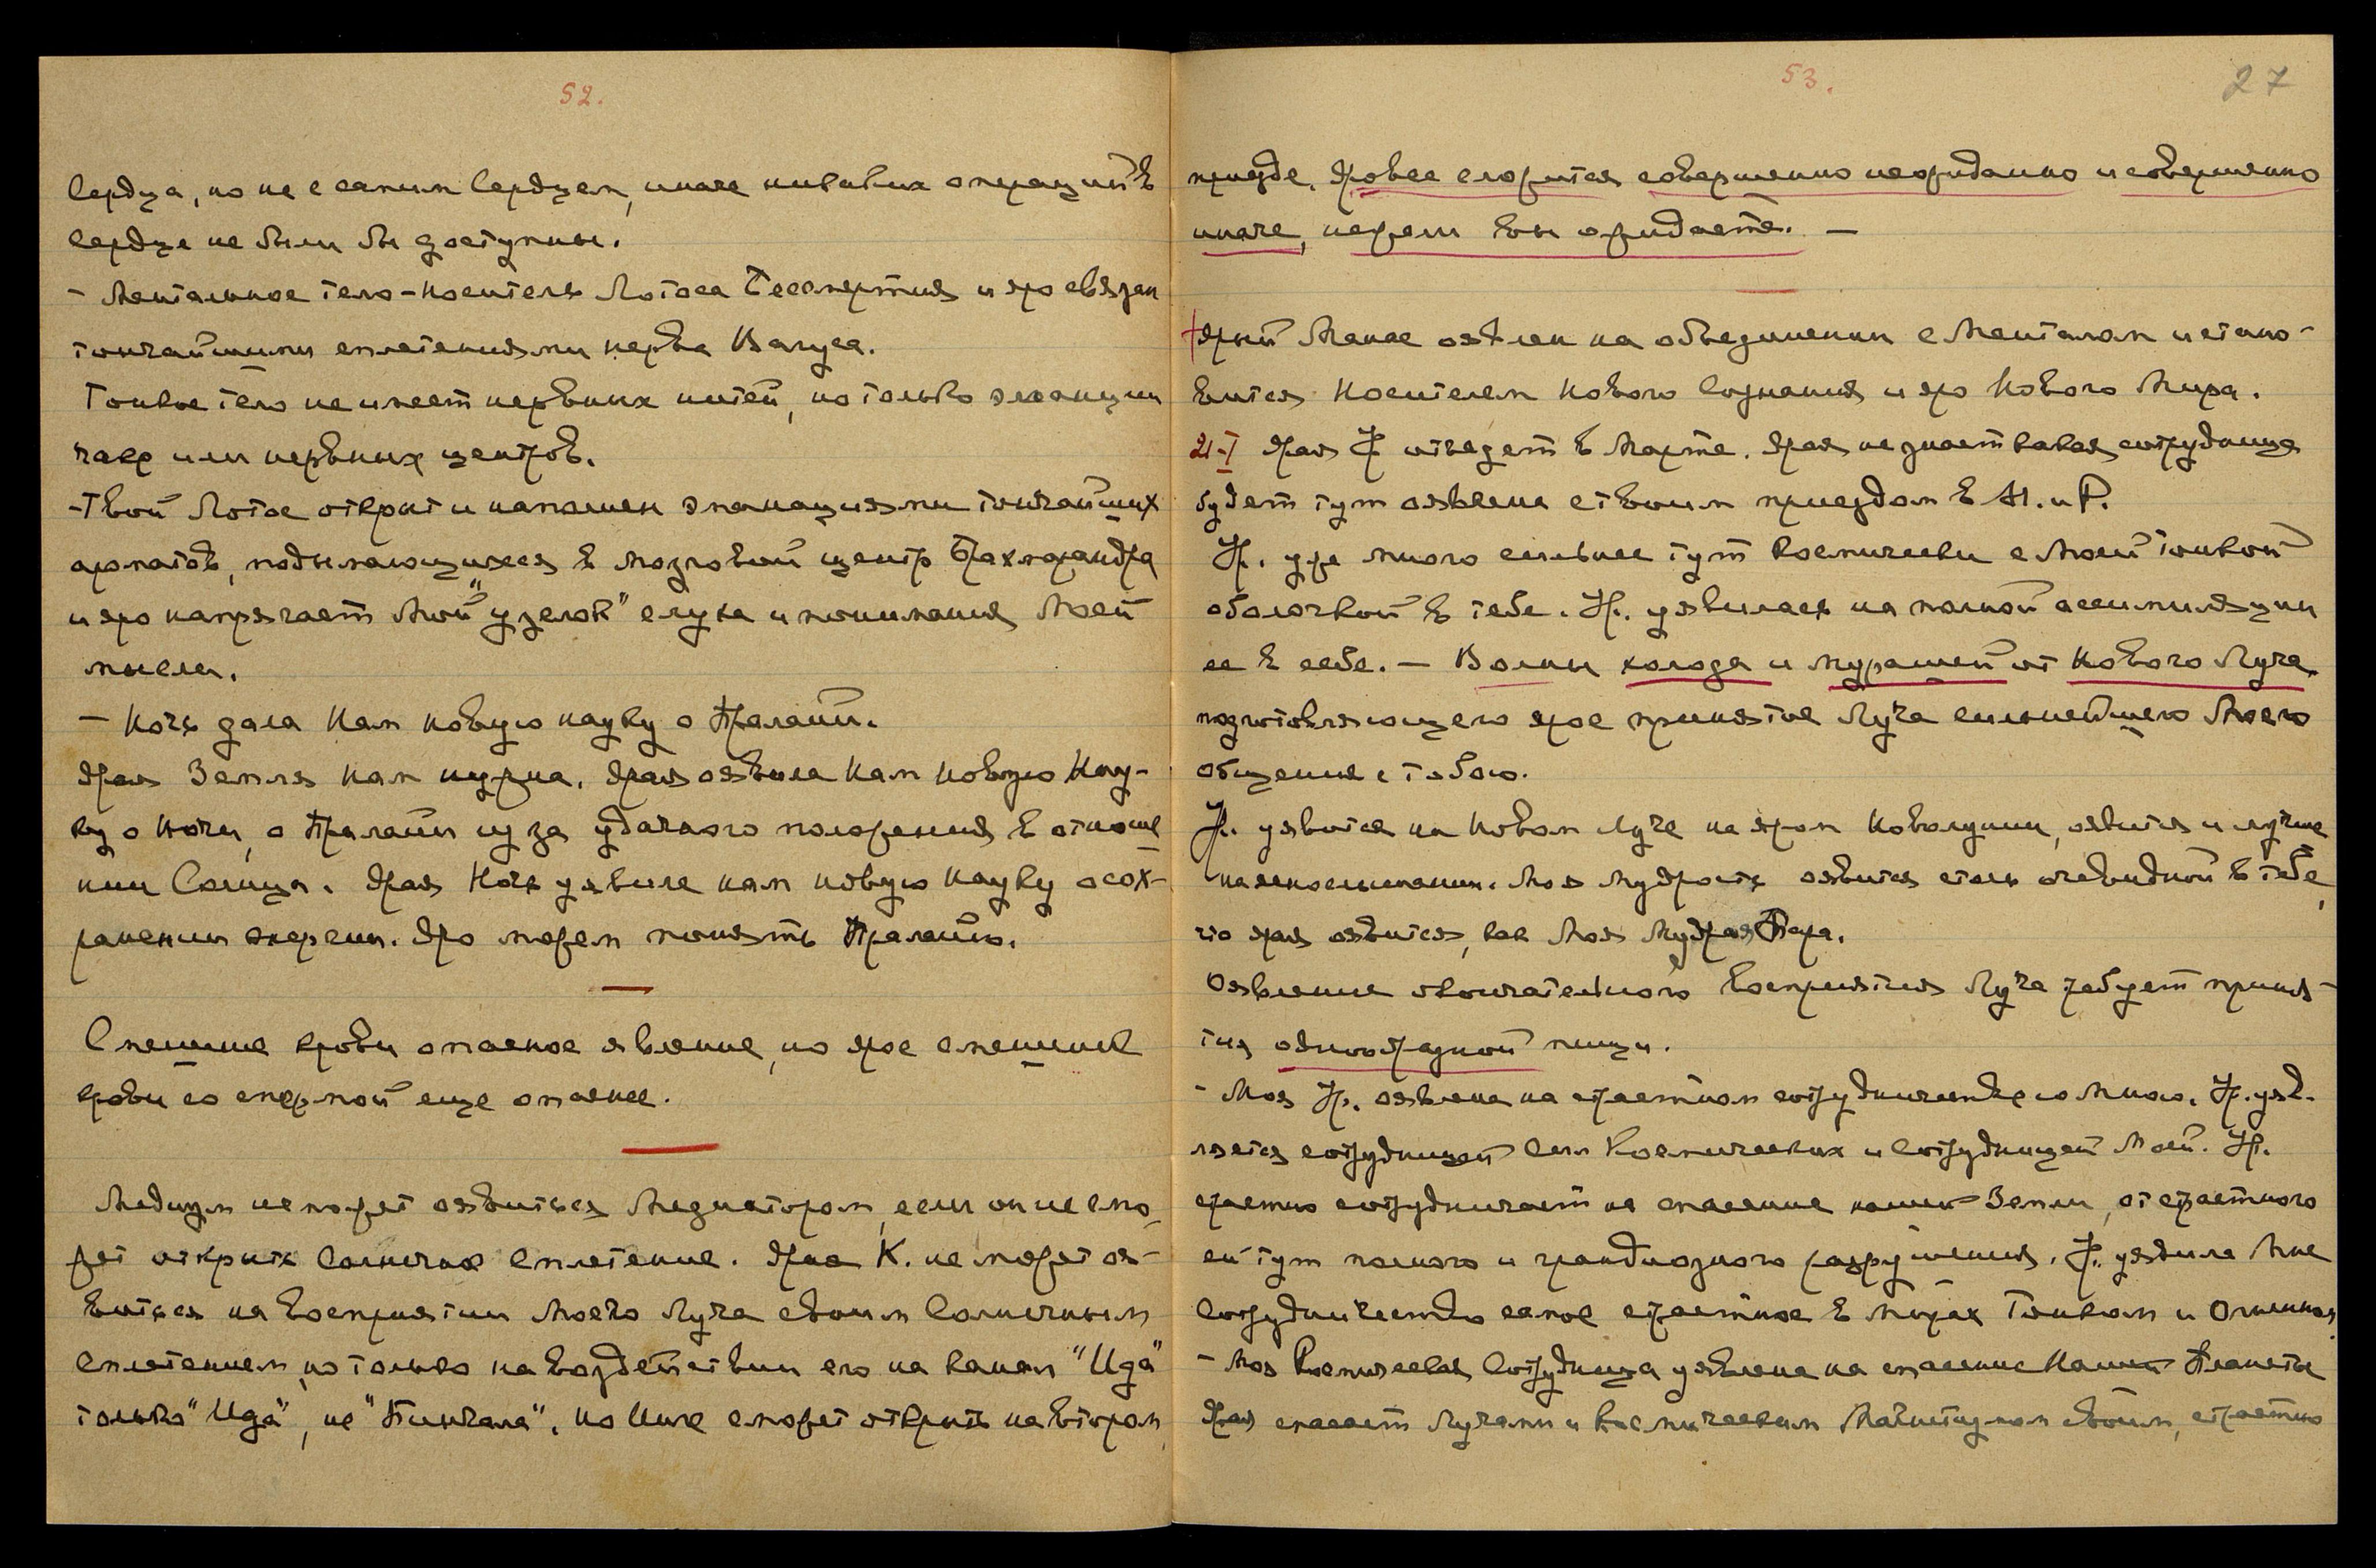 52.
Сердца, но не с самим Сердцем, иначе никаких операций в
сердце не были бы доступны.
- Ментальное тело - носитель Лотоса Бессмертия и яро связан
тончайшими сплетениями нерва Вагуса.
Тонкое тело не имеет нервных нитей, но только эманации
чакр или нервных центров.
- Твой Лотос открыт и наполнен эманациями тончайших
ароматов, подымающихся в мозговой центр Брахмарандра
и яро напрягает Мой "узелок" слуха и понимания Моей
мысли.
- Ночь дала Нам новую науку о Пралайи.
Ярая Земля Нам нужна. Ярая оявила Нам Новую Нау-
ку о Ночи, о Пралайи из за удачного положения в отноше
нии Солнца. Ярая Ночь уявила нам новую Науку о сох-
ранении энергии. Яро можем понять Пралайю.
Смешение крови опасное явление, но ярое смешение
крови со спермой еще опаснее.
Медиум не может оявиться Медиатором, если он не смо-
жет открыть Солнечное Сплетение. Ярая К. не может оя-
виться на восприятии Моего Луча своим Солнечным
Сплетением, но только на воздействии его на канал "Ида"
только "Ида", не "Пингала". Но Инге сможет открыть на втором
53.
27
приезде. Яро все сложится совершенно неожиданно и совершенно
иначе, нежели вы ожидаете. -
+ Ярый Манас оявлен на объединении с Менталом и стано-
вится Носителем Нового Сознания и яро Нового Мира.
21-I Ярая Ф отъедет в Марте. Ярая не знает какая сотрудница
будет тут оявлена с твоим приездом в Н. и Р.
Ур. уже много сильнее тут космически с Моей тонкой
оболочкой в тебе. Ур. уявилась на полной ассимиляции
ее в себе. - Волны холода и мурашей от Нового Луча,
подготовляющего ярое принятие Луча сильнейшего Моего
общения с тобою.
Ур. уявится на Новом Луче на яром Новолунии, оявится и лучше
на яснослышании. Моя Мудрость оявится столь очевидной в тебе,
что ярая оявится, как Моя Мудрая Пара.
Оявление окончательного восприятия Луча требует приня-
тия однообразной пищи.
- Моя Ур. оявлена на страстном сотрудничестве со Мною. Ур. уяв-
ляется сотрудницей Сил Космических и Сотрудницей Моей. Ур.
страстно сотрудничает на спасение нашей Земли, от страстного
ей тут полного и грандиозного разрушения. Ур. уявила Мне
Сотрудничество самое страстное в мирах Тонком и Огненном.
- Моя Космическая Сотрудница уявлена на спасение Нашей Планеты
Ярая спасает Лучами и Космическим Магнитизмом своим, страстно